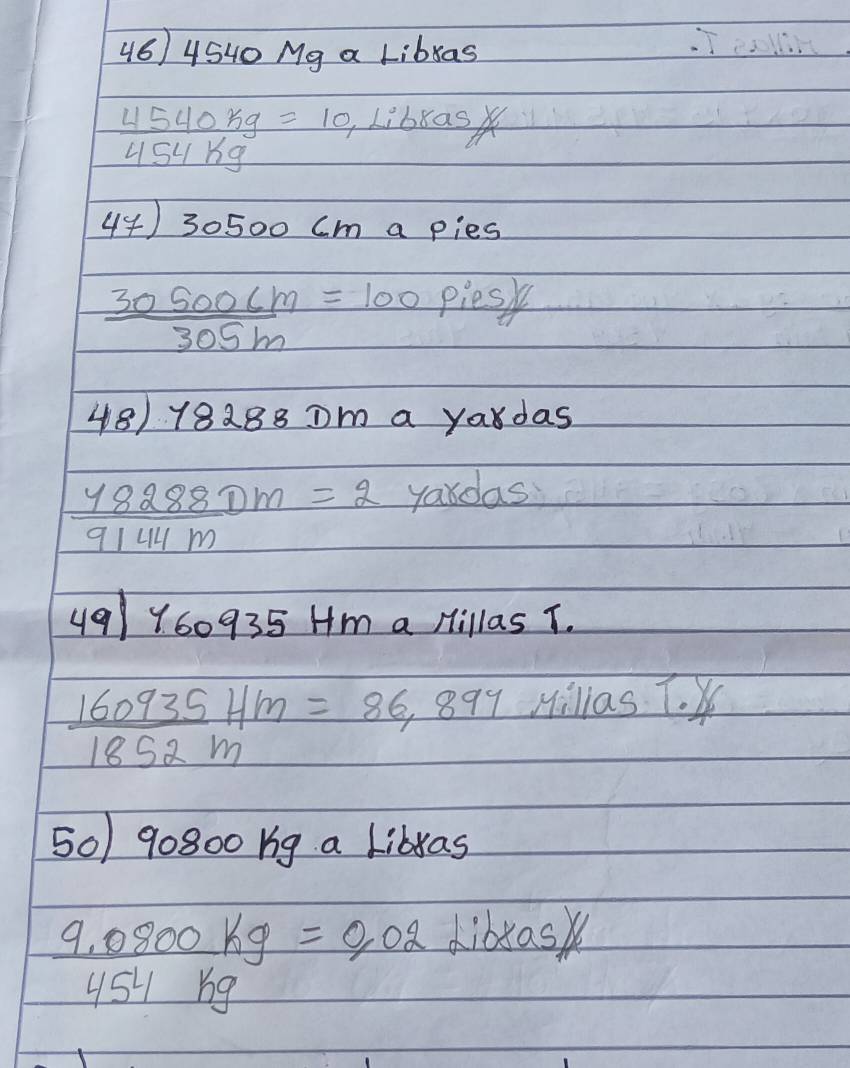 46) 4540 Mg a Libras
4540 Kg = 10, Libras
454 Kg
47) 30500 Cm a pies
30500 Cm = 100 Pies
305 m
48) 18288 Dm a yardas
18288 Dm = 2 yardas
9144 m
49) 160935 Hm a Millas T.
160935 Hm = 86,891 Millas T.
1852 m
50) 90800 Kg a Libras
9.0800 Kg = 0,02 Libras
454 Kg